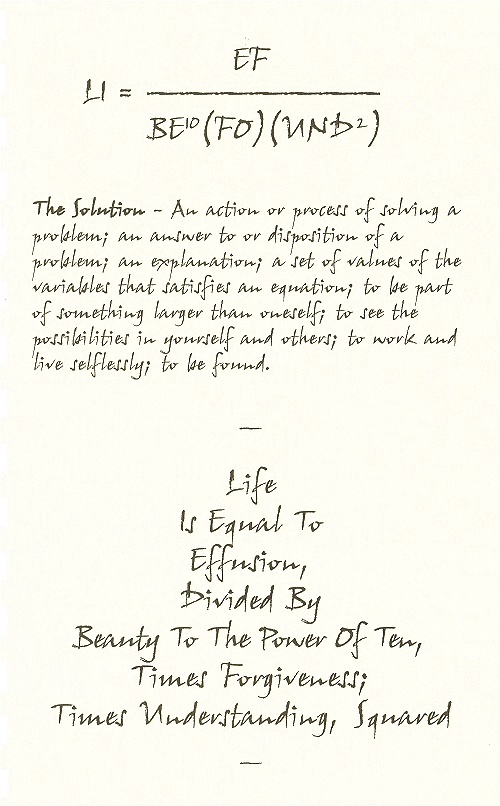 EF
LI =
BE¹⁰(FO)(UND²)
The Solution – An action or process of solving a
problem; an answer to or disposition of a
problem; an explanation; a set of values of the
variables that satisfies an equation; to be part
of something larger than oneself; to see the
possibilities in yourself and others; to work and
live selflessly; to be found.
—
Life
Is Equal To
Effusion,
Divided By
Beauty To The Power Of Ten,
Times Forgiveness;
Times Understanding, Squared
—